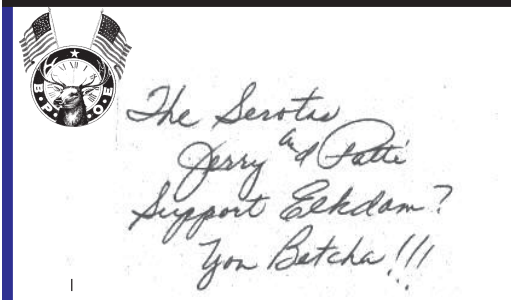 B.P.O.E
The Serotas
Jerry and Patti
Support Elkdom?
You Betcha!!!